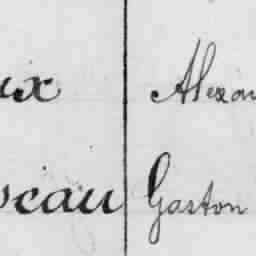 ux Alexan
seau Gaston